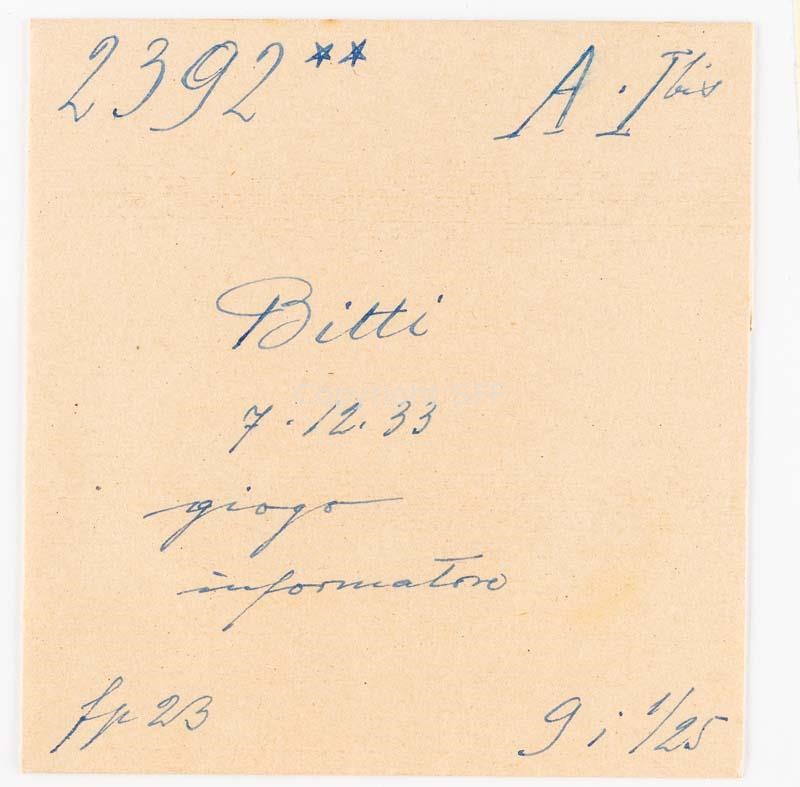 2392** A. I bis
Bitti
7.12.33
giogo
informatore
fp 23 9 i 1/25